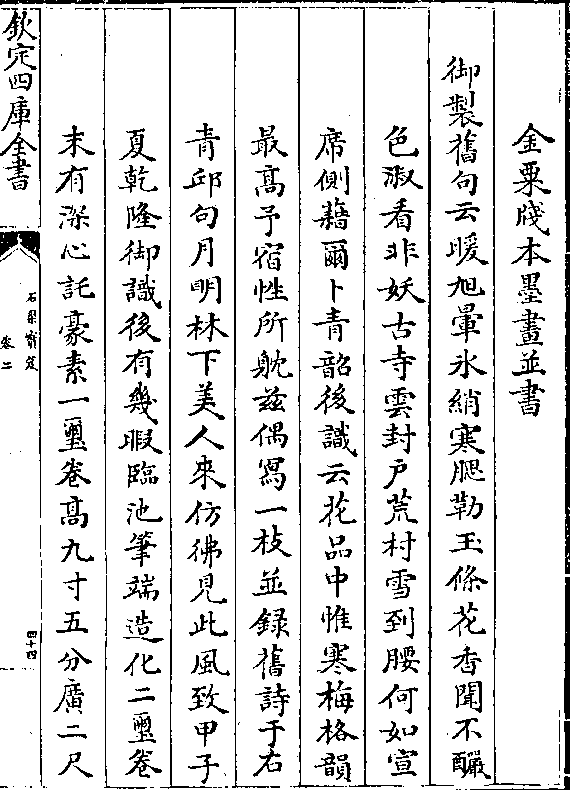 金粟牋本墨畫並書
御製舊句云暖旭暈氷綃寒肥勒玉條花香聞不釅
色淑看非妖古寺雲封戶荒村雪到腰何如宣
席側藉爾卜青韶後識云花品中惟寒梅格韻
最高予宿性所躭兹偶寫一枝並録舊詩于右
青邱句月明林下美人來仿彿見此風致甲子
夏乾隆御識後有幾暇臨池筆端造化二璽卷
末有深心託豪素一璽卷高九寸五分廣二尺
欽定四庫全書
石渠寶笈
卷二
四十四